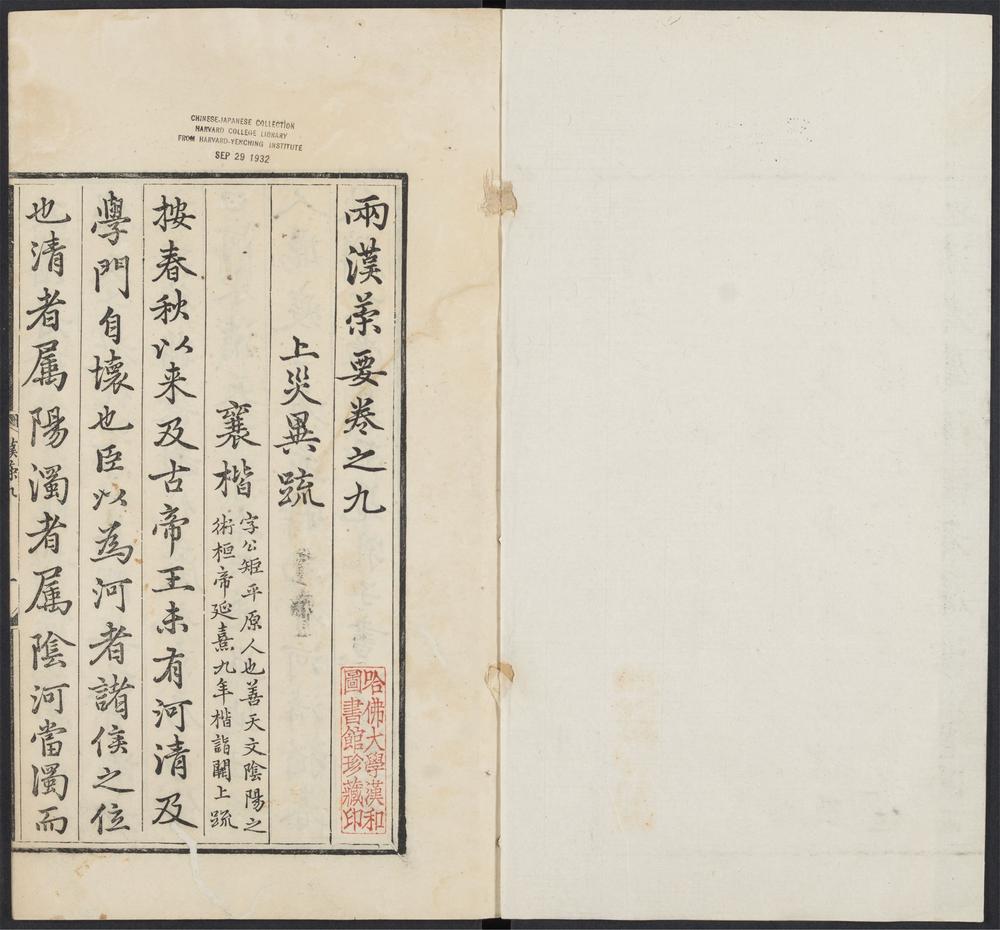 CHINESE-JAPANESE COLLECTION
HARVARD COLLEGE LIBRARY
FROM HARVARD-YENCHING INSTITUTE
SEP 29 1932
兩漢萃要卷之九
上災異䟽
襄楷
字公矩平原人也善天文陰陽之
術桓帝延熹九年楷詣闕上䟽
按春秋以来及古帝王未有河清及
學門自壞也臣以為河者諸侯之位
也清者属陽濁者属陰河當濁而
哈佛大學漢和
圖書館珍藏印